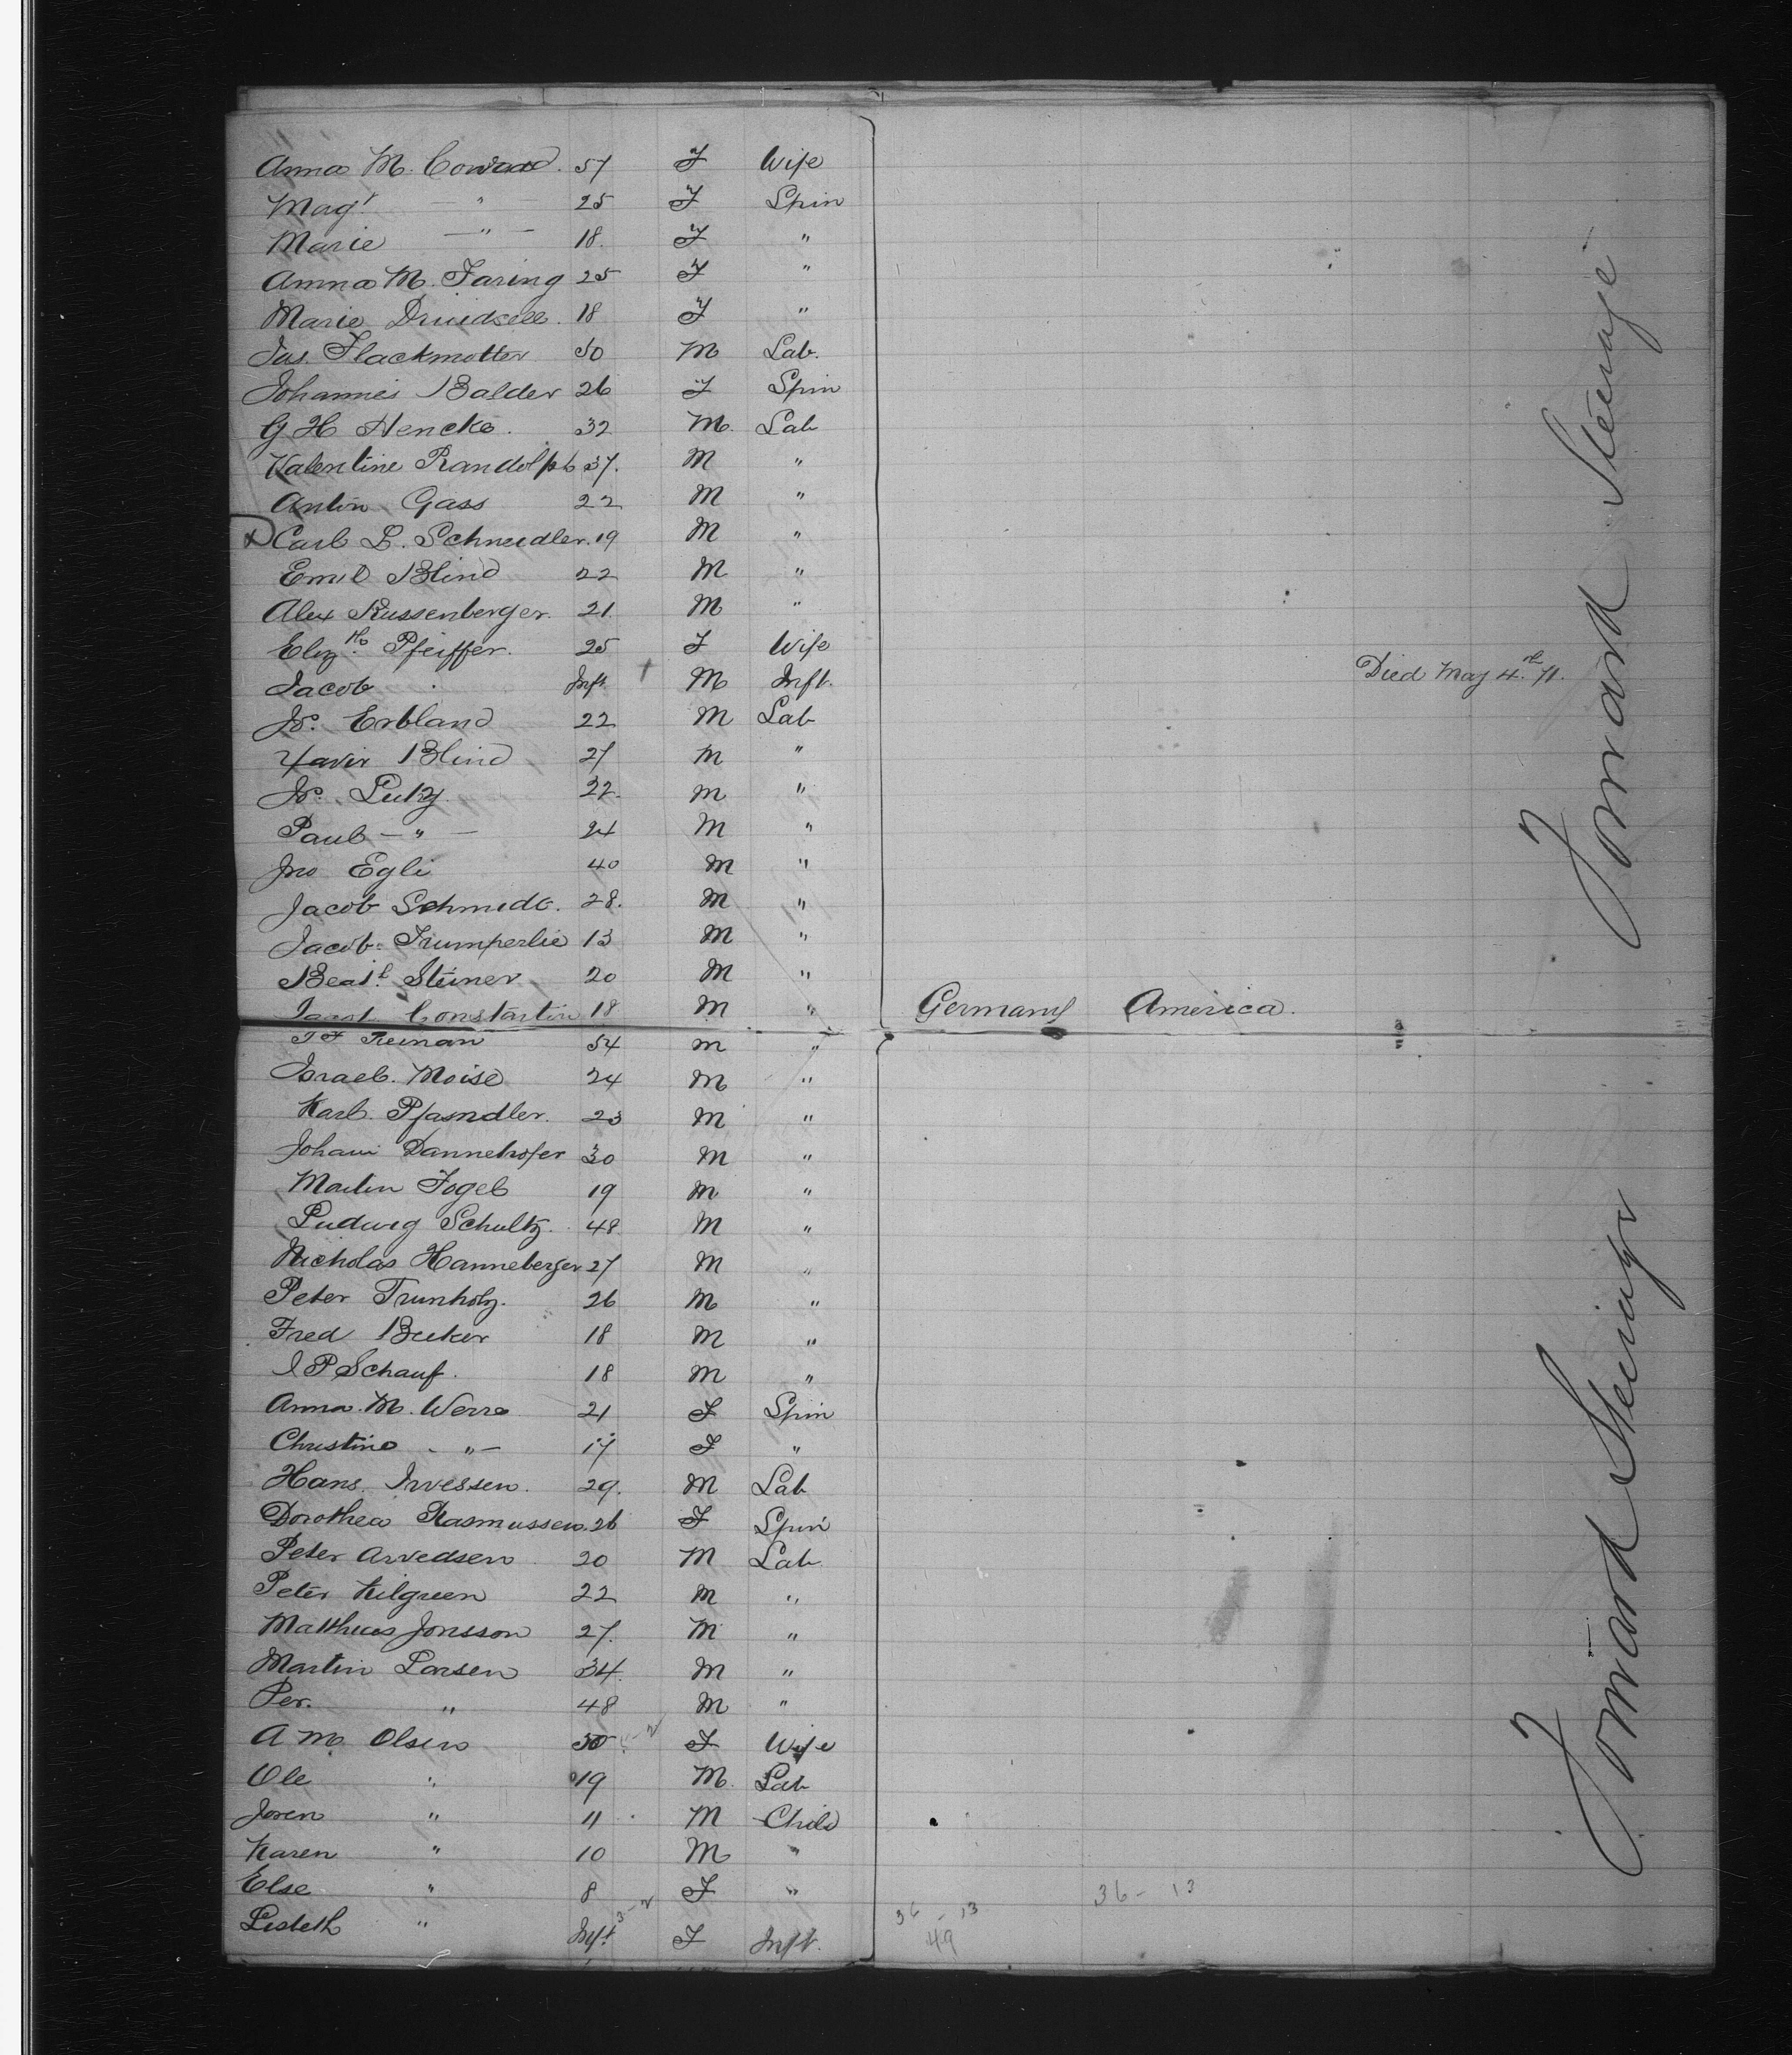 Anna M. Conrad. 57 F Wife
Magt — " — 25 F Spin
Marie — " — 18. F "
Anna M. Faring 25 F "
Marie Druidsell. 18 F "
Jos. Flackmotter 50 M Lab.
Johannes Balder 26 F Spin
G H Hencke. 32 M. Lab
Valentine Randolph 37. M "
Anton Gass 22 M "
x Carl L. Schneidler. 19 M "
Emil Blind 22 M "
Alex Russenberger. 21. M "
Elizth Pfeiffer. 25 F Wife
Jacob Inft. M Inft. Died May 4th 71.
Jo. Erbland 22 M Lab
Xavir Blind 27 M "
Jo. Lutz 22. M "
Paul — " — 24 M "
Jno Egli 40 M "
Jacob Schmidt. 28. M "
Jacob Trumperlie 13 M "
Beat. Steiner 20 M "
Constantin 18 M " Germany America.
Reinan 54 M "
Israel. Moise 24 M "
Karl. Pfasndler. 23 M "
Johann Dannehofer 30 M "
Martin Fogel 19 M "
Ludwig Schultz. 48 M "
Nicholas Hanneberger 27 M "
Peter Trunholz. 26 M "
Fred Becker 18 M "
J P Schauf. 18 M "
Anna. M. Werre 21 F Spin
Christine - " — 17 F "
Hans. Irvessen. 29. M Lab
Dorothea Rasmussen. 26 F Spin
Peter Arvedsen 20 M Lab
Peter Kilgreen 22 M "
Matthias Jonsson 27. M "
Martin Larsen 34. M "
Per. " 48 M "
A M Olsen 30 F Wife
Ole " 19 M. Lab
Joren " 11 M Child
Karen " 10 M "
Else " 8 F "
Lisbeth " Inft 3-2 F Inft.
36 - 13
36 - 13
49
Forward Steerage
Forward Steerage